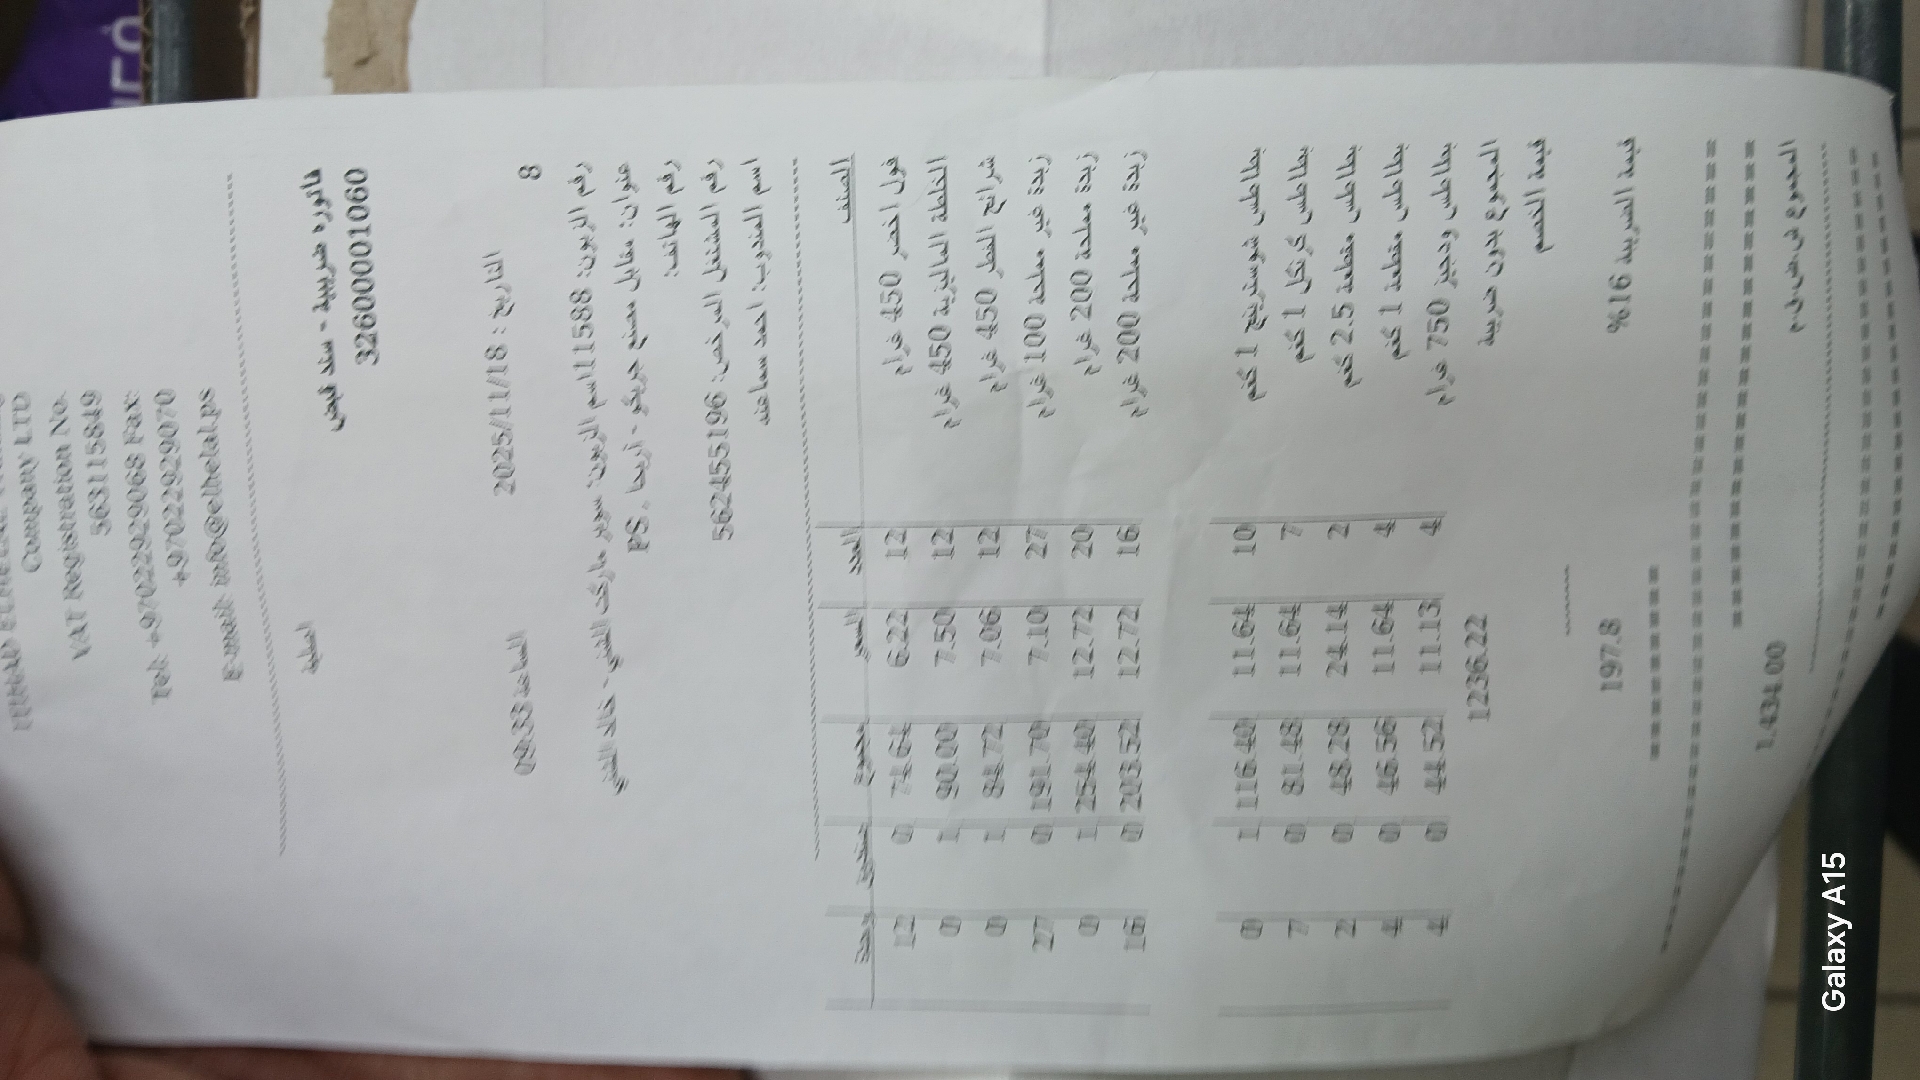 Company LTD
VAT Registration No.
563115849
Tel: +97022929068 Fax:
+97022929070
E-mail: info@elhelal.ps
فاتوره ضريبية - سند قبض
اصلية
326000001060
8
التاريخ : 2025/11/18
الساعة 09:33
رقم الزبون: 11588اسم الزبون: سوبر ماركت الفتي - خالد الفتي
عنوان: مقابل مصنع جريكو - أريحا , PS
رقم الهاتف:
رقم المشتغل المرخص: 562455196
اسم المندوب: احمد سماعنه
الصنف العدد السعر مجموع صندوق وحدة
فول اخضر 450 غرام 12 6.22 74.64 0 12
الخلطة الماليزية 450 غرام 12 7.50 90.00 1 0
شرائح الفطر 450 غرام 12 7.06 84.72 1 0
زبدة غير مملحة 100 غرام 27 7.10 191.70 0 27
زبدة مملحة 200 غرام 20 12.72 254.40 1 0
زبدة غير مملحة 200 غرام 16 12.72 203.52 0 16
بطاطس شوسترينج 1 كغم 10 11.64 116.40 1 0
بطاطس كرنكل 1 كغم 7 11.64 81.48 0 7
بطاطس مقطعة 2.5 كغم 2 24.14 48.28 0 2
بطاطس مقطعة 1 كغم 4 11.64 46.56 0 4
بطاطس ودجيز 750 غرام 4 11.13 44.52 0 4
المجموع بدون ضريبة 1236.22
قيمة الخصم
قيمة الضريبة 16% 197.8
المجموع ش.ض.ق.م 1,434.00
Galaxy A15